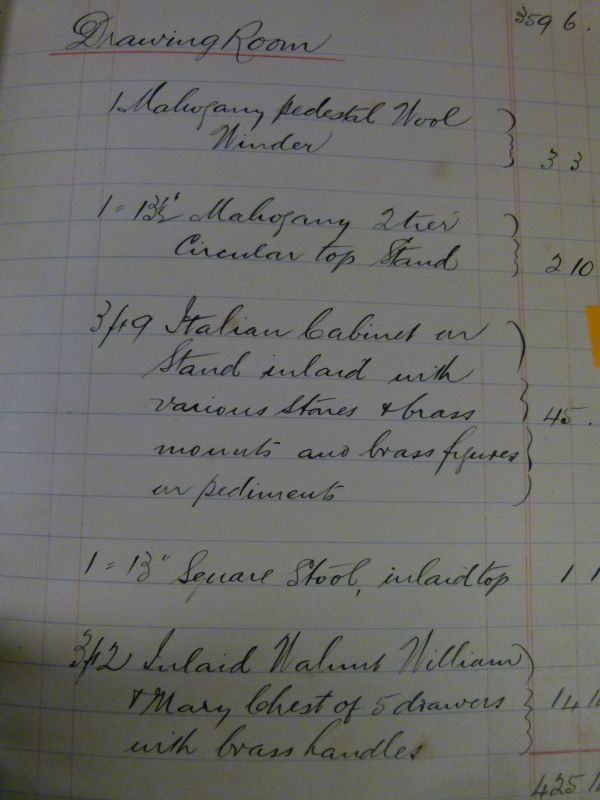 359 6.
Drawing Room
1 Mahogany pedestal Wool
Winder
3 3
1 = 13½" Mahogany 2 tier
Circular top Stand
2 10
3ft 9 Italian Cabinet on
Stand inlaid with
various Stones & brass
45.
mounts and brass figures
on pediments
1 = 13" Square Stool, inlaid top
1 1
3ft 2 Inlaid Walnut William
& Mary Chest of 5 drawers
14
with brass handles
425